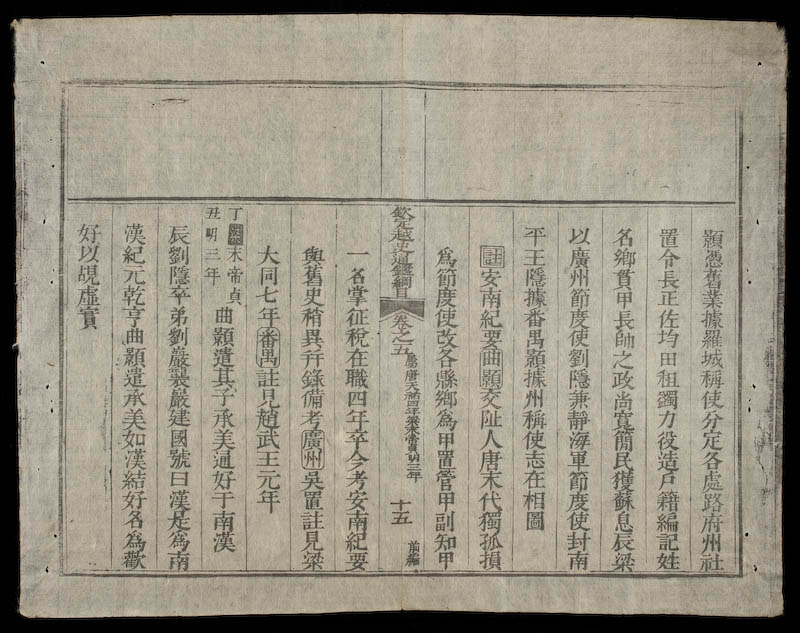 顥憑舊業據羅城稱使分定各處路府州社
置令長正佐均田租蠲力役造戶籍編記姓
名鄉貫甲長帥之政尚寬簡民獲蘇息辰梁
以廣州節度使劉隱兼靜海軍節度使封南
平王隱據番禺顥據州稱使志在相圖
註安南紀要曲顥交阯人唐末代獨孤損
爲節度使改各縣鄉爲甲置管甲副知甲
欽定越史通鑑綱目 卷之五 十五 前編
一名掌征稅在職四年卒今考安南紀要
與舊史稍異幷錄備考廣州吳置註見梁
大同七年番禺註見趙武王元年
丁丑 末帝貞明三年 曲顥遣其子承美通好于南漢
辰劉隱卒弟劉巖襲巖建國號曰漢是爲南
漢紀元乾亨曲顥遣承美如漢結好名爲歡
好以覘虛實